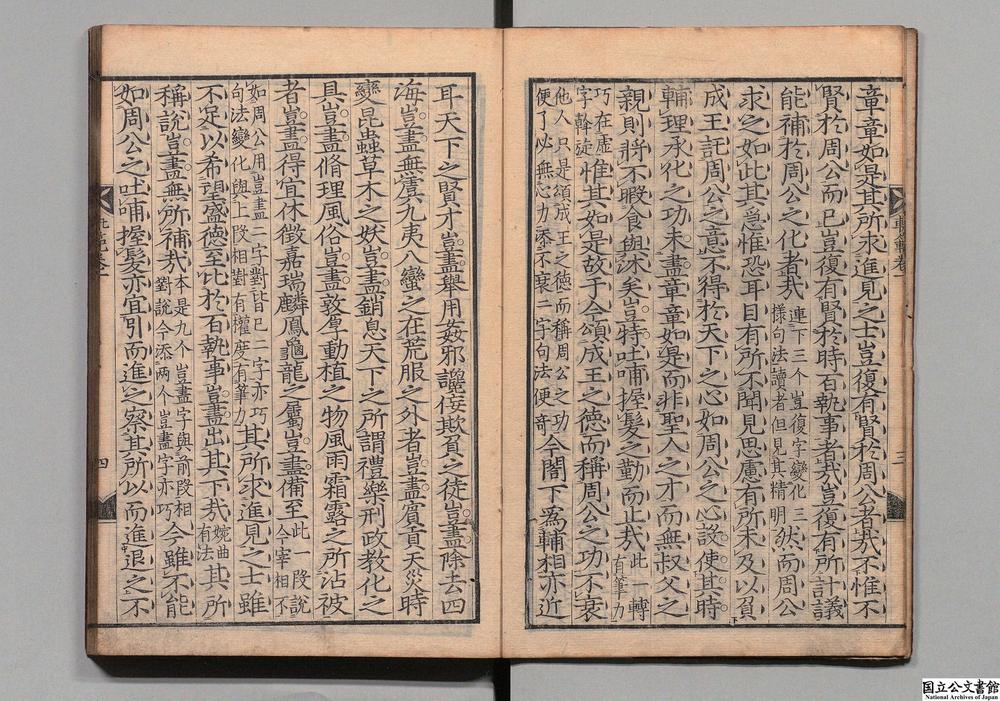 章章如是其所求進見之士豈復有賢於周公者哉不惟不
賢於周公而已豈復有賢於時百執事者哉豈復有所計議
能補於周公之化者哉連下三个豈復字變化三樣句法讀者但見其精明然而周公
求之如此其急惟恐耳目有所不聞見思慮有所未及以負
成王託周公之意不得於天下之心如周公之心設使其時
輔理承化之功未盡章章如是而非聖人之才而無叔父之
親則將不暇食與沐矣豈特吐哺握髮之勤而止哉此一轉有筆力
巧在虛字斡旋惟其如是故于今頌成王之德而稱周公之功不衰
他人只是頌成王之德而稱周公之功便了必無心力添不衰二字句法便奇今閤下為輔相亦近
耳天下之賢才豈盡舉用姦邪讒佞欺負之徒豈盡除去四
海豈盡無虞九夷八蠻之在荒服之外者豈盡賓貢天災時
變昆蟲草木之妖豈盡銷息天下之所謂禮樂刑政教化之
具豈盡脩理風俗豈盡敦厚動植之物風雨霜露之所沾被
者豈盡得宜休徵嘉瑞麟鳳龜龍之屬豈盡備至此一段說今宰相不
如周公用豈盡二字對皆已二字亦巧句法變化與上段相對有權度有筆力其所求進見之士雖
不足以希望盛德至比於百執事豈盡出其下哉婉曲有法其所
稱說豈盡無所補哉本是九个豈盡字與前段相對說今添兩个豈盡字亦巧今雖不能
如周公之吐哺握髮亦宜引而進之察其所以而進退之不
三
四
国立公文書館
National Archives of Japan